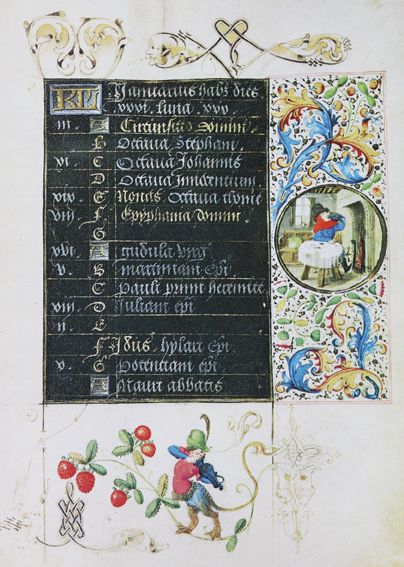 KL Januarius habz dies
xxxi. luna. xxx.
iii. A Circumsio domini.
B Octava Stephani.
xi. C Octava Johannis
D Octava Innocentium
xix E Nonis Octava thome
viii F Epyphania domini.
G
xvi A gudula virg
v. B maximiani epi
C pauli primi heremite
xiii D Juliani epi
ii. E
F Idus hylari epi
v. G potentiani epi
A Mauri abbatis